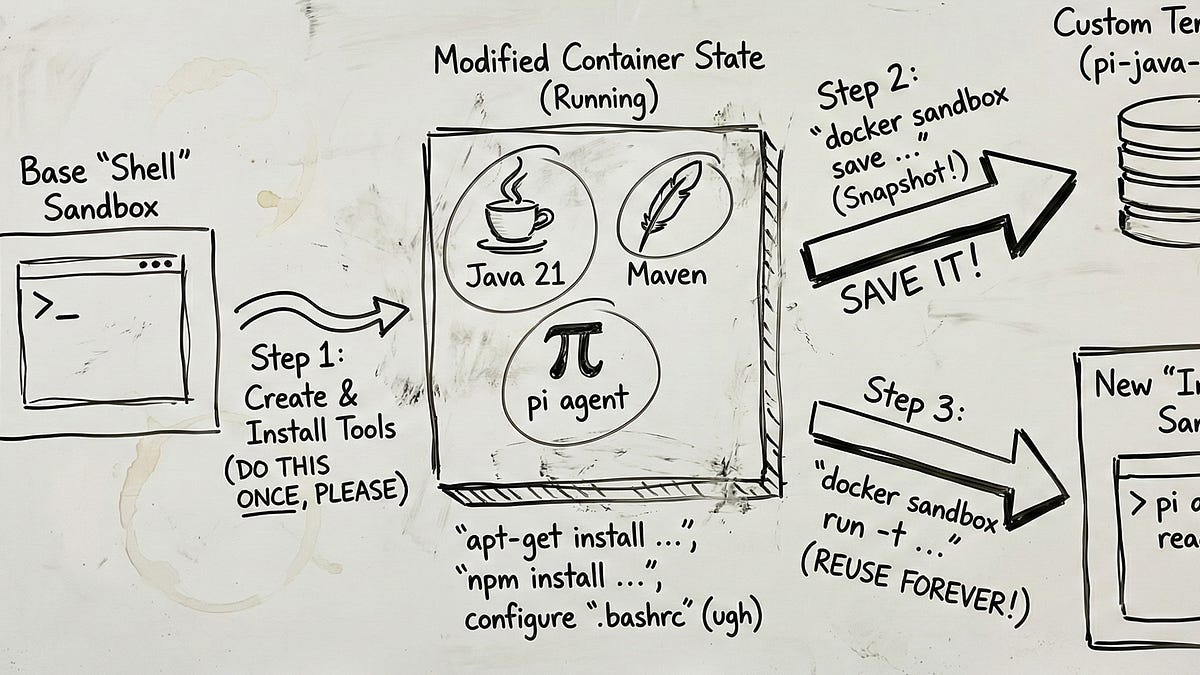 Base “Shell”
Sandbox
>_
Step 1:
Create &
Install Tools
(DO THIS
ONCE, PLEASE)
Modified Container State
(Running)
Java 21
Maven
π
pi agent
“apt-get install ...”,
“npm install ...”,
configure “.bashrc” (ugh)
Step 2:
“docker sandbox
save ...”
(Snapshot!)
SAVE IT!
Custom
(pi-java-
Step 3:
“docker sandbox
run -t ...”
(REUSE FOREVER!)
New
>pi